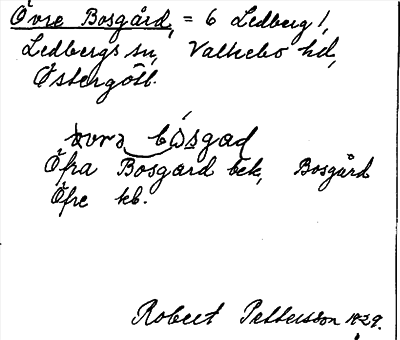 Övre Bosgård, = 6 Ledberg 1,
Ledbergs sn, Valkebo hd,
Östergötl.
bosgad
Öfra Bosgård bek, Bosgård
Öfre kb.
Robert Pettersson 1929.